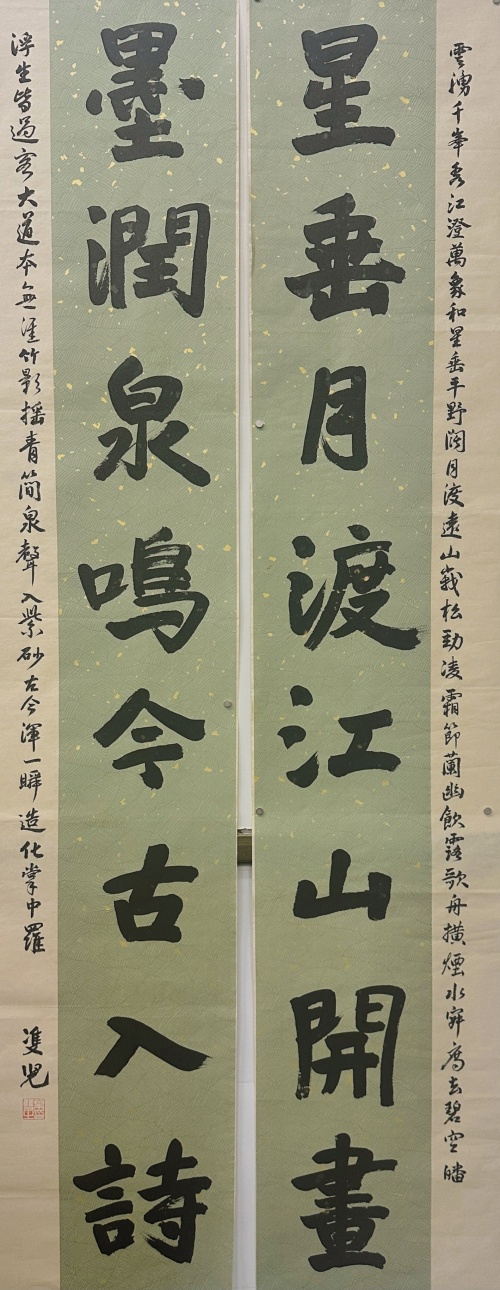 雲湧千峯秀江澄萬象和星垂平野闊月渡遠山峩松勁凌霜節蘭幽飲露歌舟橫煙水窄鴈去碧空皤
星垂月渡江山開畫
墨潤泉鳴今古入詩
浮生皆過客大道本無涯竹影搖青簡泉聲入紫砂古今渾一瞬造化掌中羅